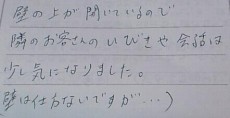 壁の上が開いているので
隣のお客さんのいびきや会話は
少し気になりました。
壁は仕方ないですが…)